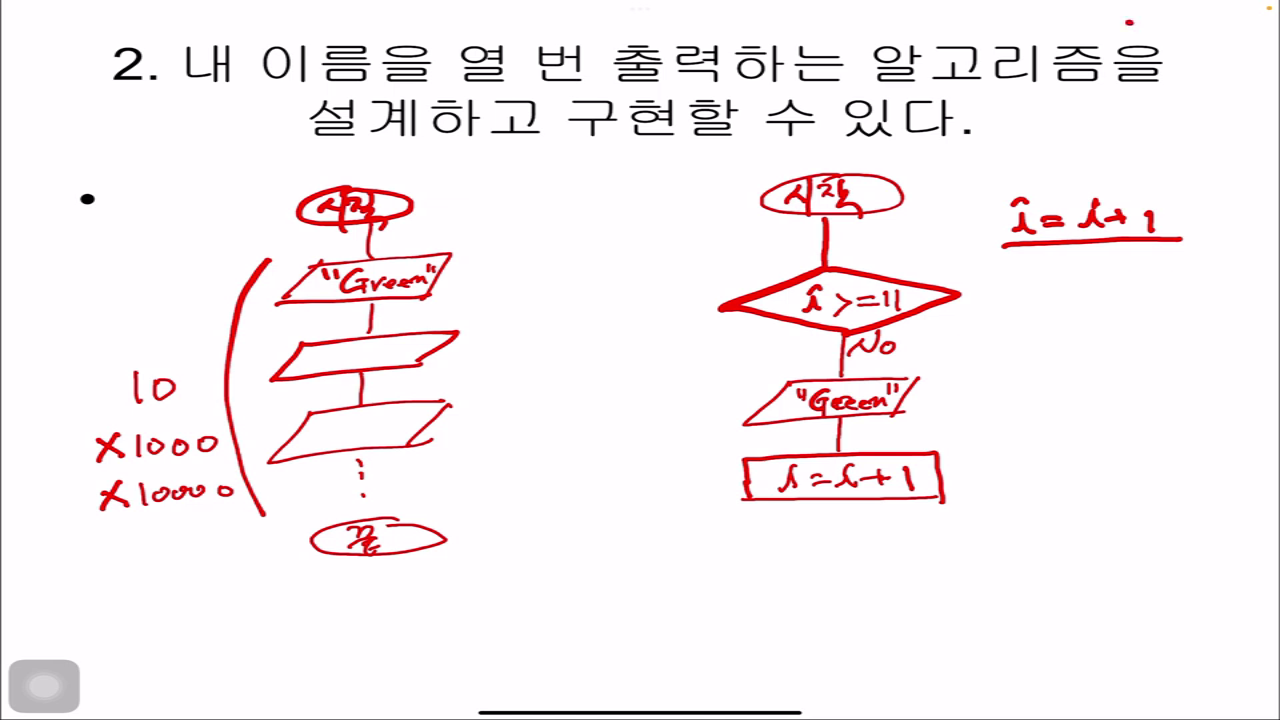 2. 내 이름을 열 번 출력하는 알고리즘을
설계하고 구현할 수 있다.
시작
"Green"
10
X1000
X10000
끝
시작
i >=11
No
"Green"
i=i+1
i=i+1